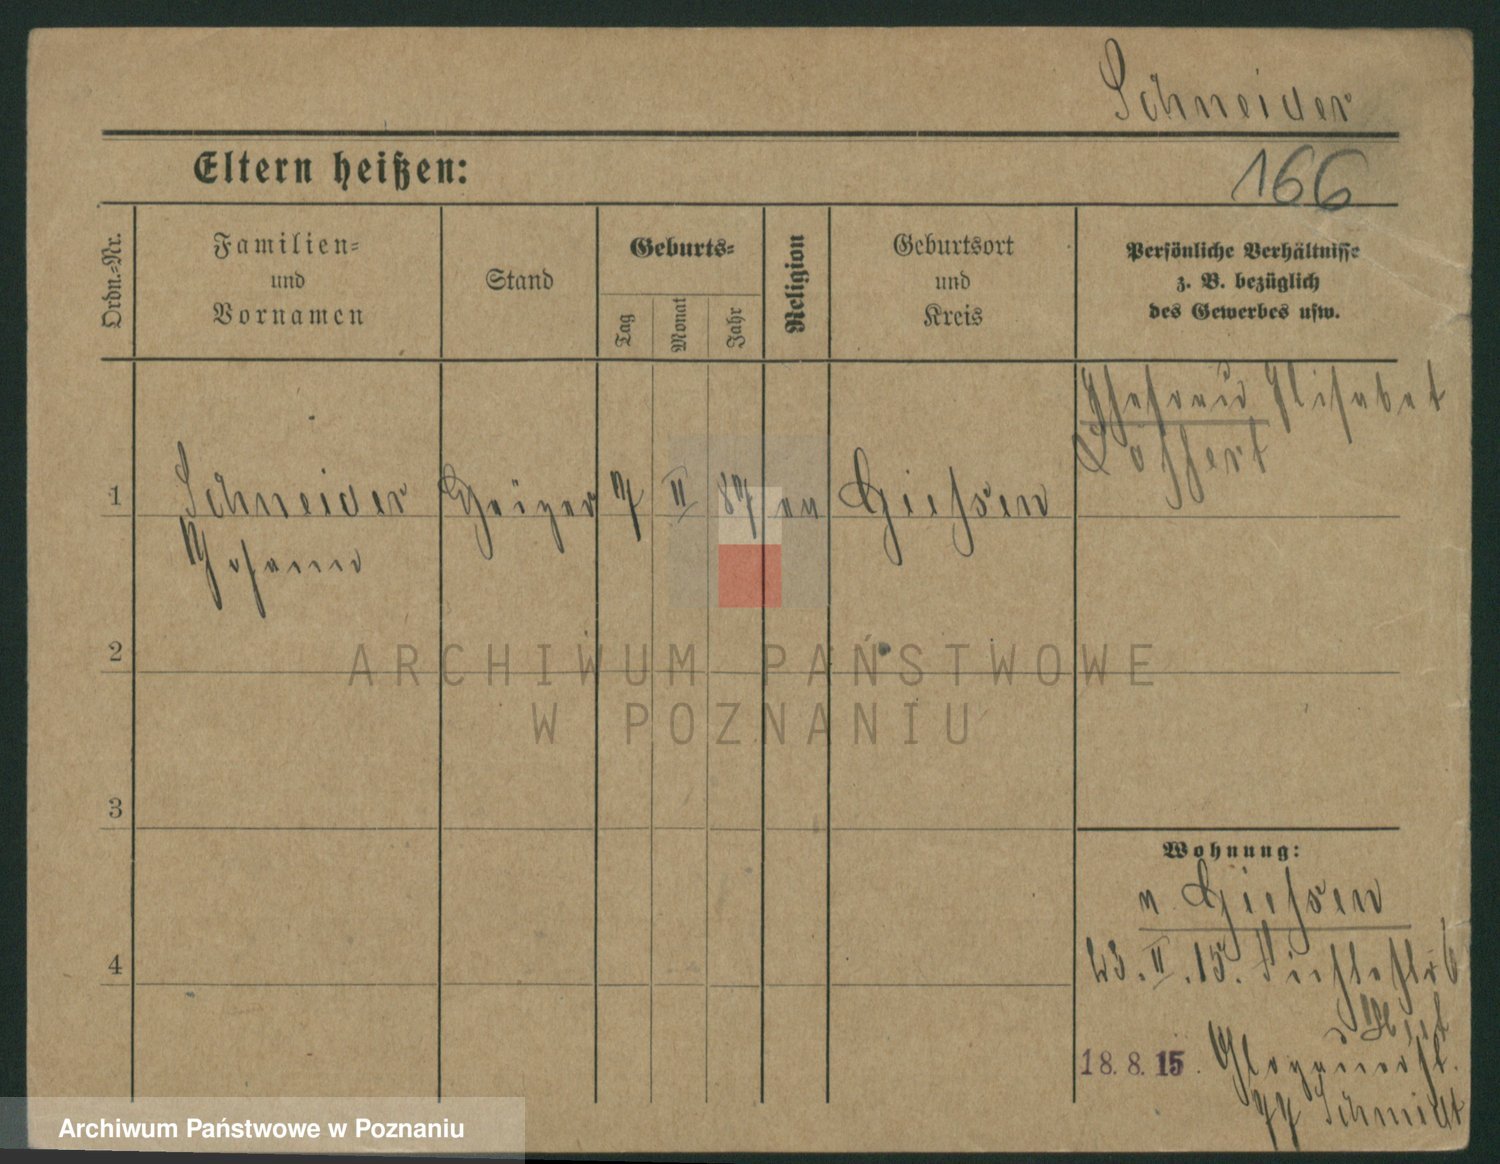 Schneider
Eltern heißen:
166
Ordn.-Nr.
Familien-
und
Vornamen
Stand
Geburts-
Tag
Monat
Jahr
Religion
Geburtsort
und
Kreis
Persönliche Verhältnisse
z. B. bezüglich
des Gewerbes usw.
Ehefrau Elisabet
1
Schneider
7 II 87 ev
Giessen
Johann
2
ARCHIWUM PAŃSTWOWE
W POZNANIU
3
Wohnung:
v. Giessen
4
23. II. 15.
18. 8. 15.
Schmidt
Archiwum Państwowe w Poznaniu